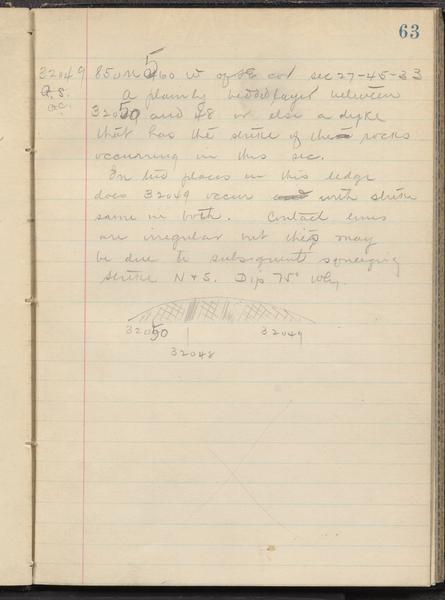 63
32049 850 N 560 W of SE cor sec 27-45-33
A plainly bedded layer between
32050 and 48 or else a dyke
that has the strike of the rocks
occurring in this sec.
In two places in this ledge
does 32049 occur with strike
same in both. Contact lines
are irregular but this may
be due to subsequent squeezing
Strike N & S. Dip 75° W'ly.
32050 32049
32048